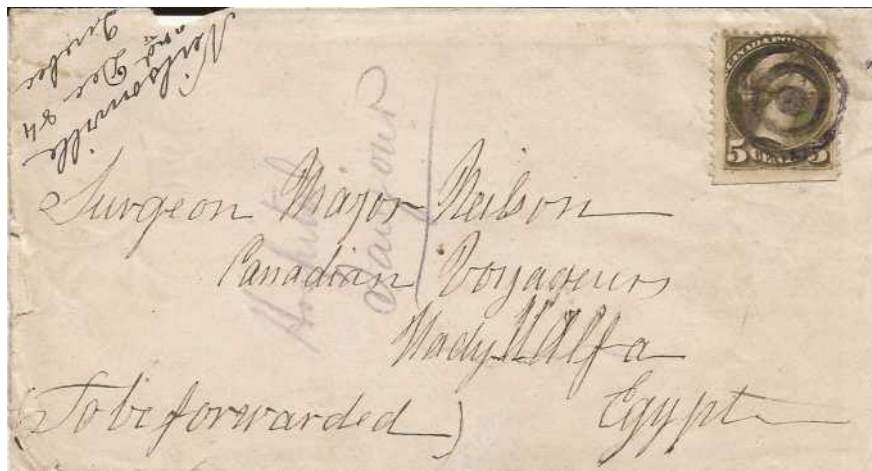 Neilsonville
2nd Dec 84
Quebec
CANADA POSTAGE
5 CENTS 5
Surgeon Major Neilson
Canadian Voyageurs
Wady Halfa
(To be forwarded)
Egypt